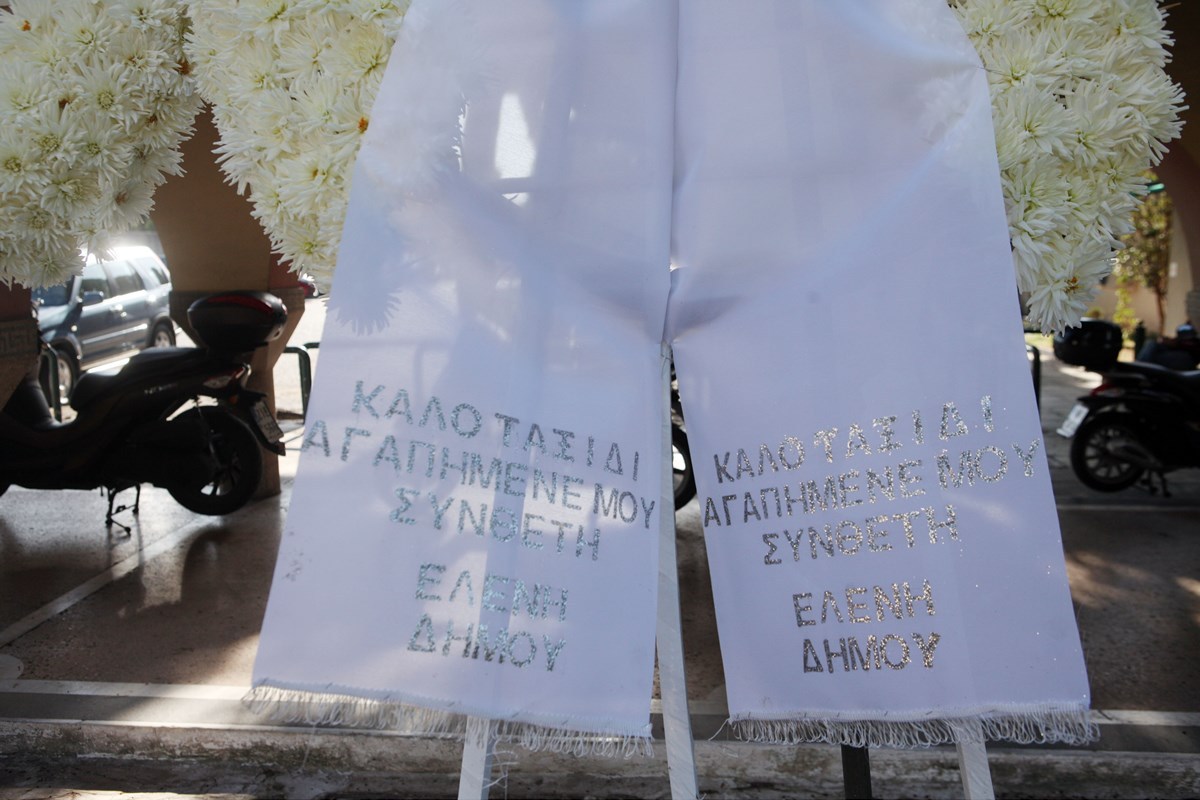 ΚΑΛΟ ΤΑΞΙΔΙ
ΑΓΑΠΗΜΕΝΕ ΜΟΥ
ΣΥΝΘΕΤΗ
ΕΛΕΝΗ
ΔΗΜΟΥ
ΚΑΛΟ ΤΑΞΙΔΙ
ΑΓΑΠΗΜΕΝΕ ΜΟΥ
ΣΥΝΘΕΤΗ
ΕΛΕΝΗ
ΔΗΜΟΥ